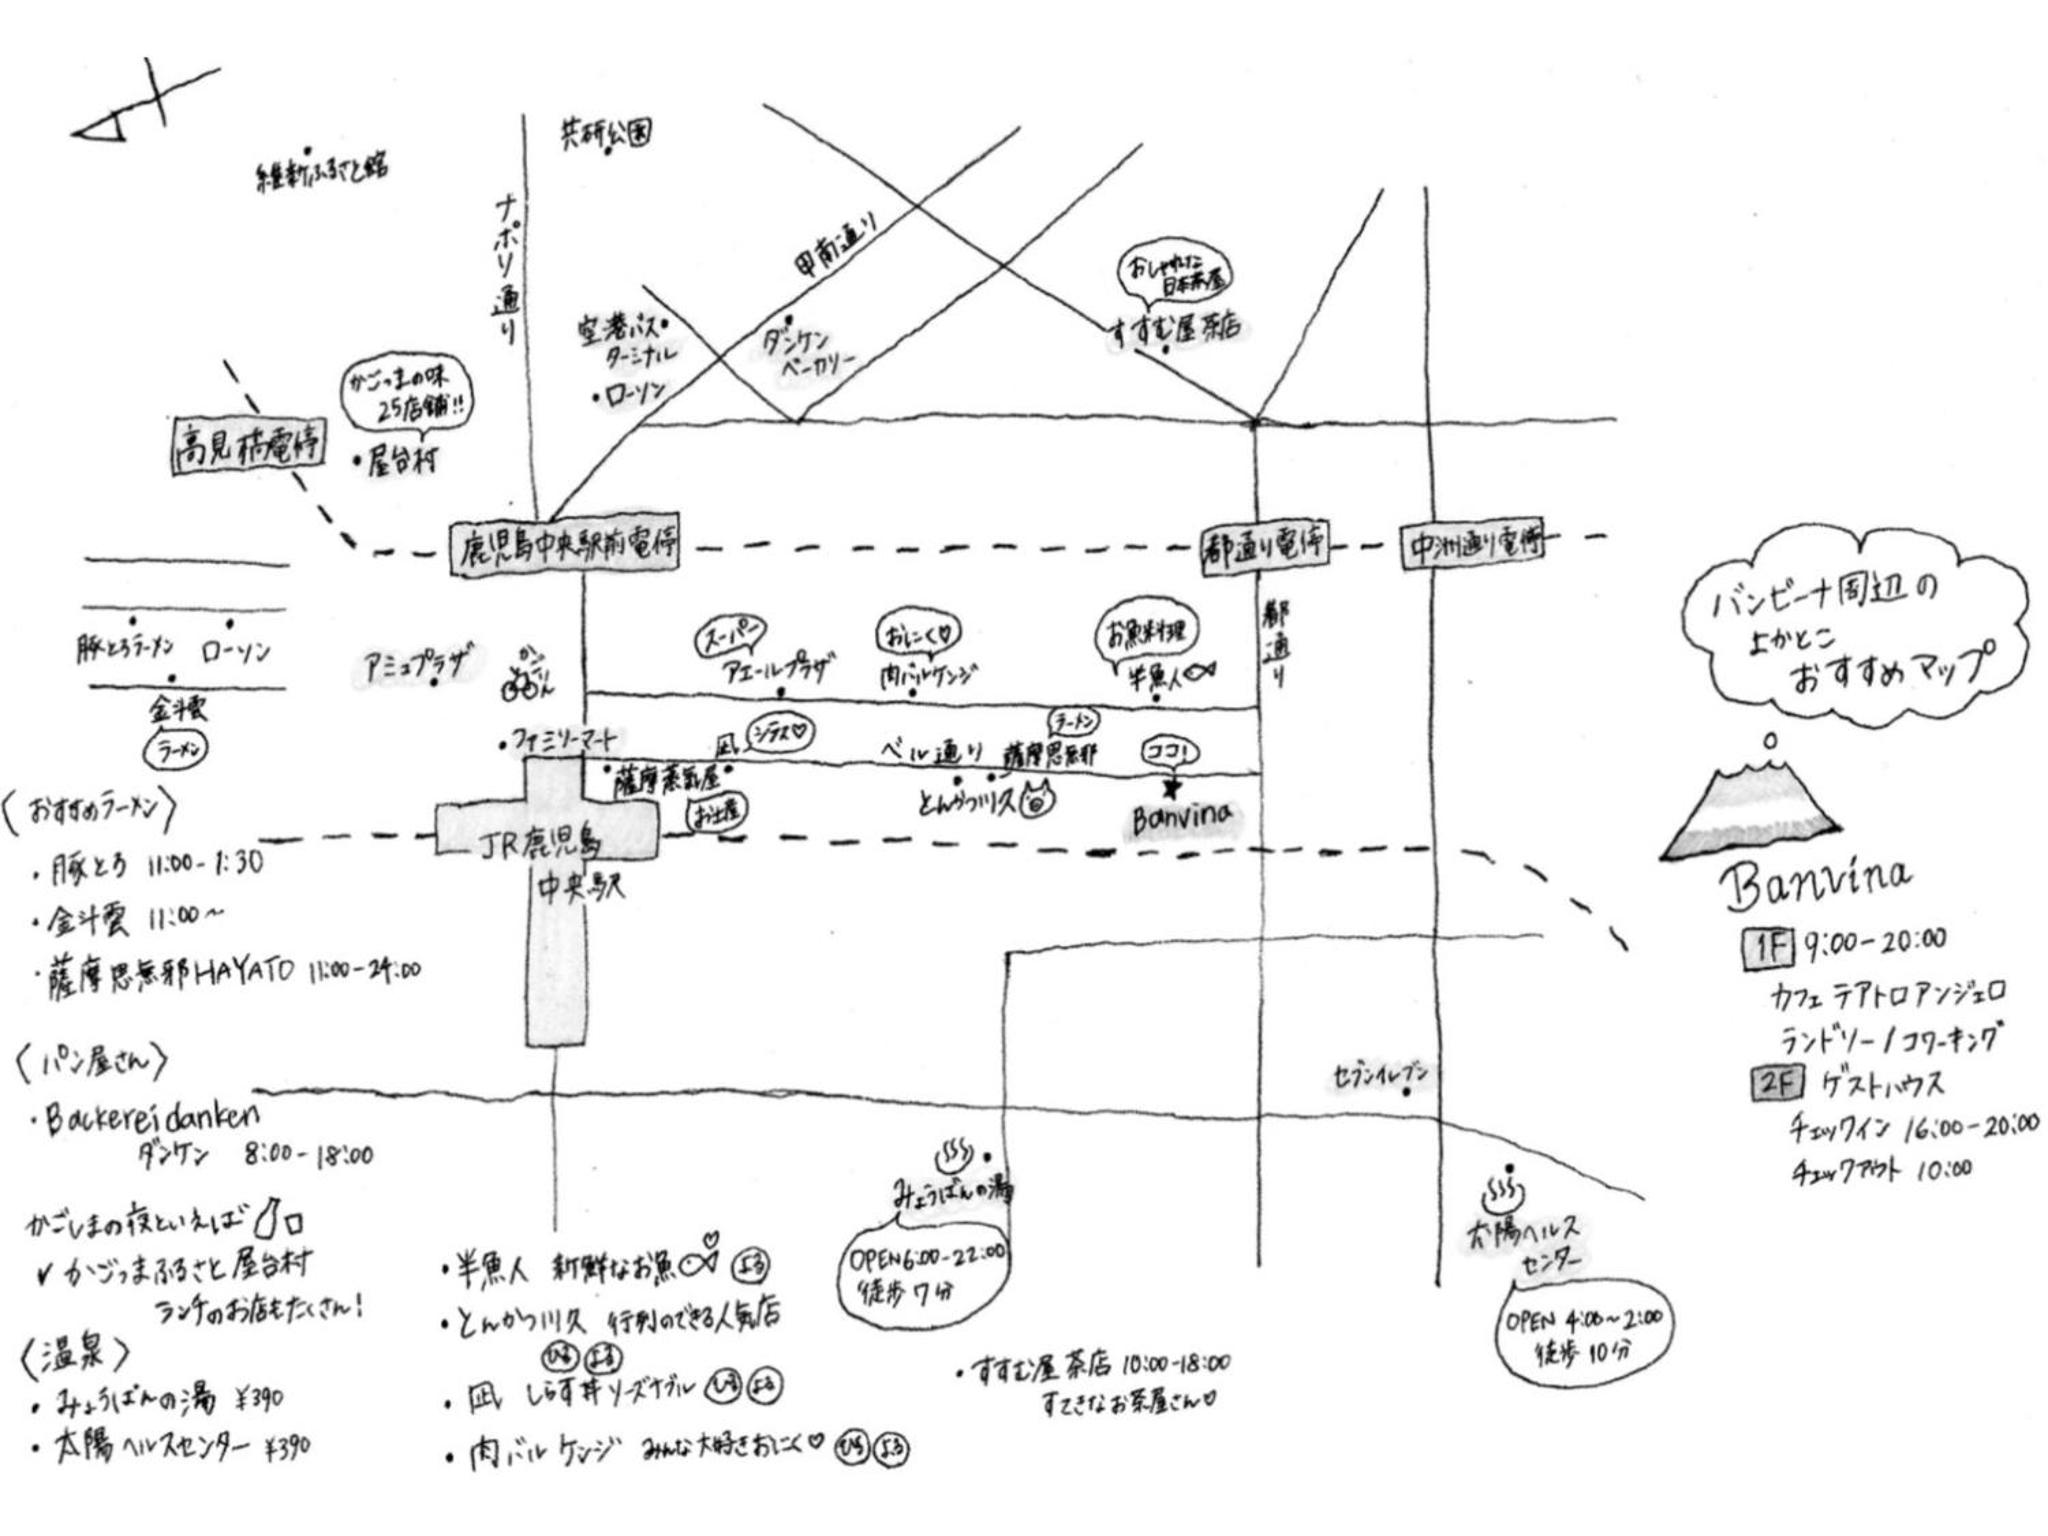 維新ふるさと館
共研公園
ナポリ通り
甲南通り
空港バス
ターミナル
・ローソン
ダンケン
ベーカリー
おしゃれな
日本茶屋
すすむ屋茶店
かごっまの味
25店舗!!
・屋台村
高見橋電停
鹿児島中央駅前電停
都通り電停
中洲通り電停
都通り
豚とろラーメン
ローソン
金斗雲
ラーメン
アミュプラザ
かごりん
スーパー
アエールプラザ
おにく♡
肉バルケンジ
お魚料理
半魚人
・ファミリーマート
薩摩蒸氣屋
お土産
凪
シラス♡
ベル通り
ラーメン
薩摩思無邪
とんかつ川久
ココ!
Banvina
JR鹿児島
中央駅
バンビーナ周辺の
よかとこ
おすすめマップ
Banvina
1F 9:00-20:00
カフェ テアトロアンジェロ
ランドリー/コワーキング
2F ゲストハウス
チェックイン 16:00-20:00
チェックアウト 10:00
セブンイレブン
みょうばんの湯
OPEN6:00-22:00
徒歩7分
太陽ヘルス
センター
OPEN 4:00~2:00
徒歩10分
〈おすすめラーメン〉
・豚とろ 11:00-1:30
・金斗雲 11:00~
・薩摩思無邪HAYATO 11:00-24:00
〈パン屋さん〉
・Backereidanken
ダンケン 8:00-18:00
かごしまの夜といえば
✓かごっまふるさと屋台村
ランチのお店もたくさん!
〈温泉〉
・みょうばんの湯 ¥390
・太陽ヘルスセンター ¥390
・半魚人 新鮮なお魚 よる
・とんかつ川久 行列のできる人気店
ひる よる
・凪 しらす丼リーズナブル ひる よる
・肉バルケンジ みんな大好きおにく♡ ひる よる
・すすむ屋茶店 10:00-18:00
すてきなお茶屋さん♡